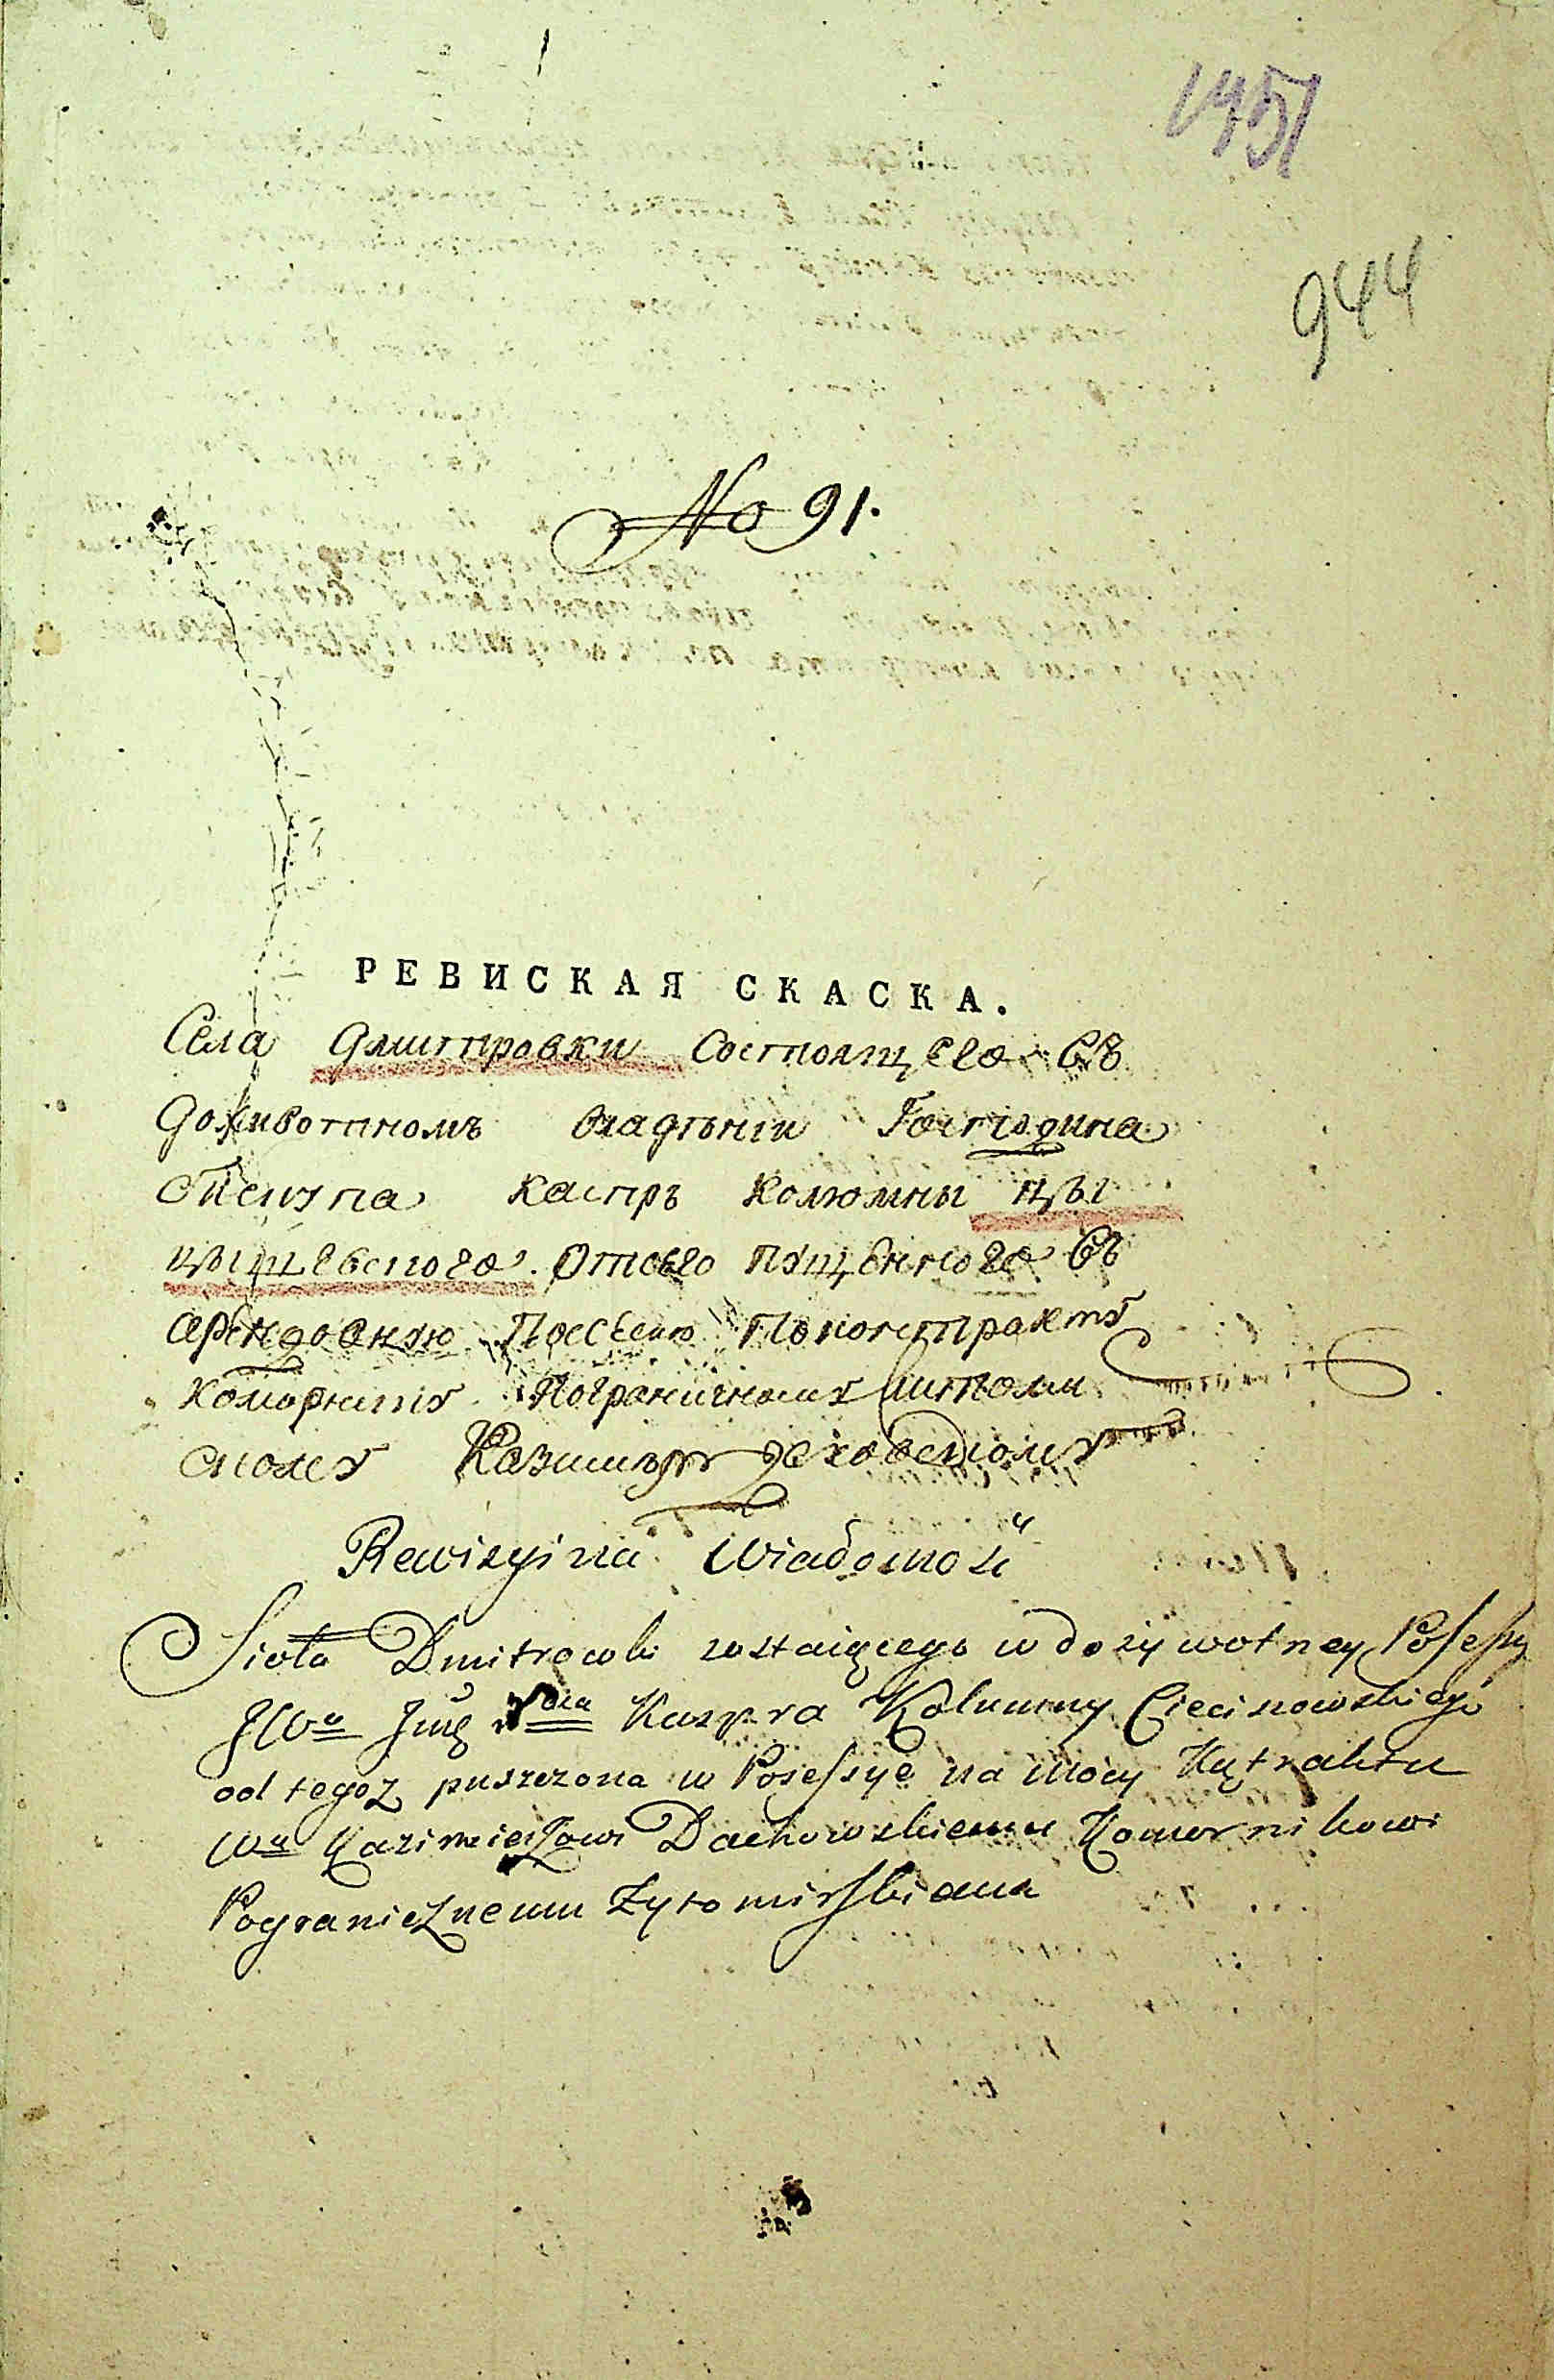 1451
944
No 91.
РЕВИСКАЯ СКАСКА.
Села Дмитровки Состоящего Въ
Доживотномъ владѣнїи Господина
Бискупа Каспръ Колюмны Цы
цышевского. Отоего пущенного Въ
арендовную Посесию По контракту
Коморнику Пограничному Житоми
скому Казимиру Деховскому
Rewizyina Wiadomość
Sioła Dmitrowki zostaiącego w dożywotney Possessyi
JWo Jmę Kaspra Kolumny Cieciszowskiego
od tegoż puszczona w Possessyę na mocy Kątraktu
Wu Kazimierzowi Dachowskiemu Komornikowi
Pogranicznemu Żytomirskiemu